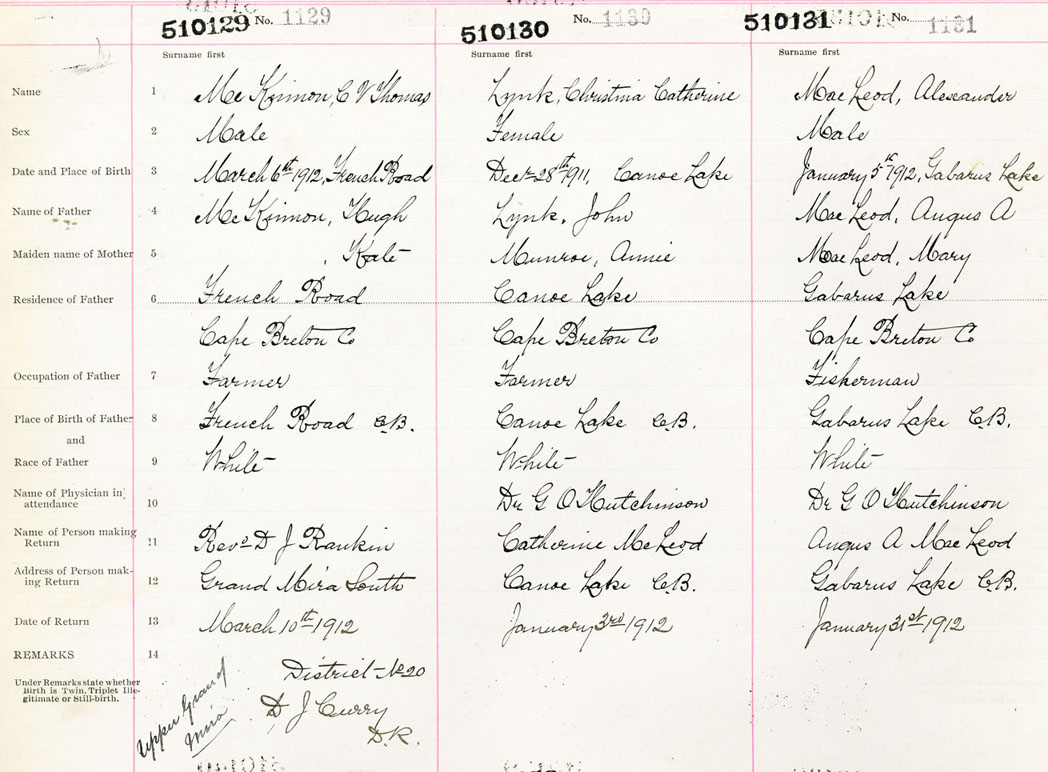 510129 No. 1129 510130 No. 1130 510131 No. 1131
Surname first Surname first Surname first
Name 1 Mc Kinnon, C V Thomas Lynk, Christina Catherine Mac Leod, Alexander
Sex 2 Male Female Male
Date and Place of Birth 3 March 6th 1912, French Road Decr 28th 1911, Canoe Lake January 5th 1912, Gabarus Lake
Name of Father 4 Mc Kinnon, Hugh Lynk, John Mac Leod, Angus A
Maiden name of Mother 5 , Kate Munroe, Annie Mac Leod, Mary
Residence of Father 6 French Road Canoe Lake Gabarus Lake
Cape Breton Co Cape Breton Co Cape Breton Co
Occupation of Father 7 Farmer Farmer Fisherman
Place of Birth of Father 8 French Road C.B. Canoe Lake C.B. Gabarus Lake C.B.
and
Race of Father 9 White White White
Name of Physician in attendance 10 Dr G O Hutchinson Dr G O Hutchinson
Name of Person making Return 11 Revd D J Rankin Catherine McLeod Angus A Mac Leod
Address of Person mak-
ing Return 12 Grand Mira South Canoe Lake C.B. Gabarus Lake C.B.
Date of Return 13 March 10th 1912 January 3rd 1912 January 31st 1912
REMARKS 14
Under Remarks state whether
Birth is Twin, Triplet Ille-
gitimate or Still-birth.
District No 20
D J Curry
D.R.
Upper Grand
Mira